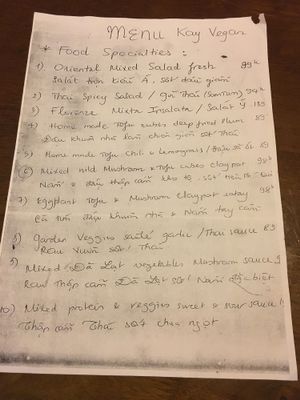 MENU Kay Vegan
* Food Specialties :
1) Oriental Mixed Salad fresh 99k
Salát trộn kiểu Á, sốt dầu giấm
2) Thai Spicy Salad / gỏi Thái (Somtam) 99k
3) Florenze Mixta Insalata / Salát Ý 139
4) Home made Tofu cubes deep fried Plum 89
Đậu khuôn nhà làm chiên giòn sốt Thái
5) Home made Tofu Chili & Lemongrass / Đậu sả ớt 89
6) Mixed mild Mushroom & Tofu cubes claypot 98k
Nấm & đậu thập cẩm kho tộ. sốt tiêu
7) Eggplant Tofu & Mushroom Claypot 98k
Cà tím đậu khuôn nhà & Nấm tay cầm
8) garden Veggies sauté garlic / Thai sauce 89
Rau vườn sốt Thái
9) Mixed Đà Lạt vegetables Mushroom sauce 9
Rau thập cẩm Đà Lạt sốt Nấm đặc biệt
10) Mixed protein & veggies sweet & sour sauce
Thập cẩm Thái sốt chua ngọt